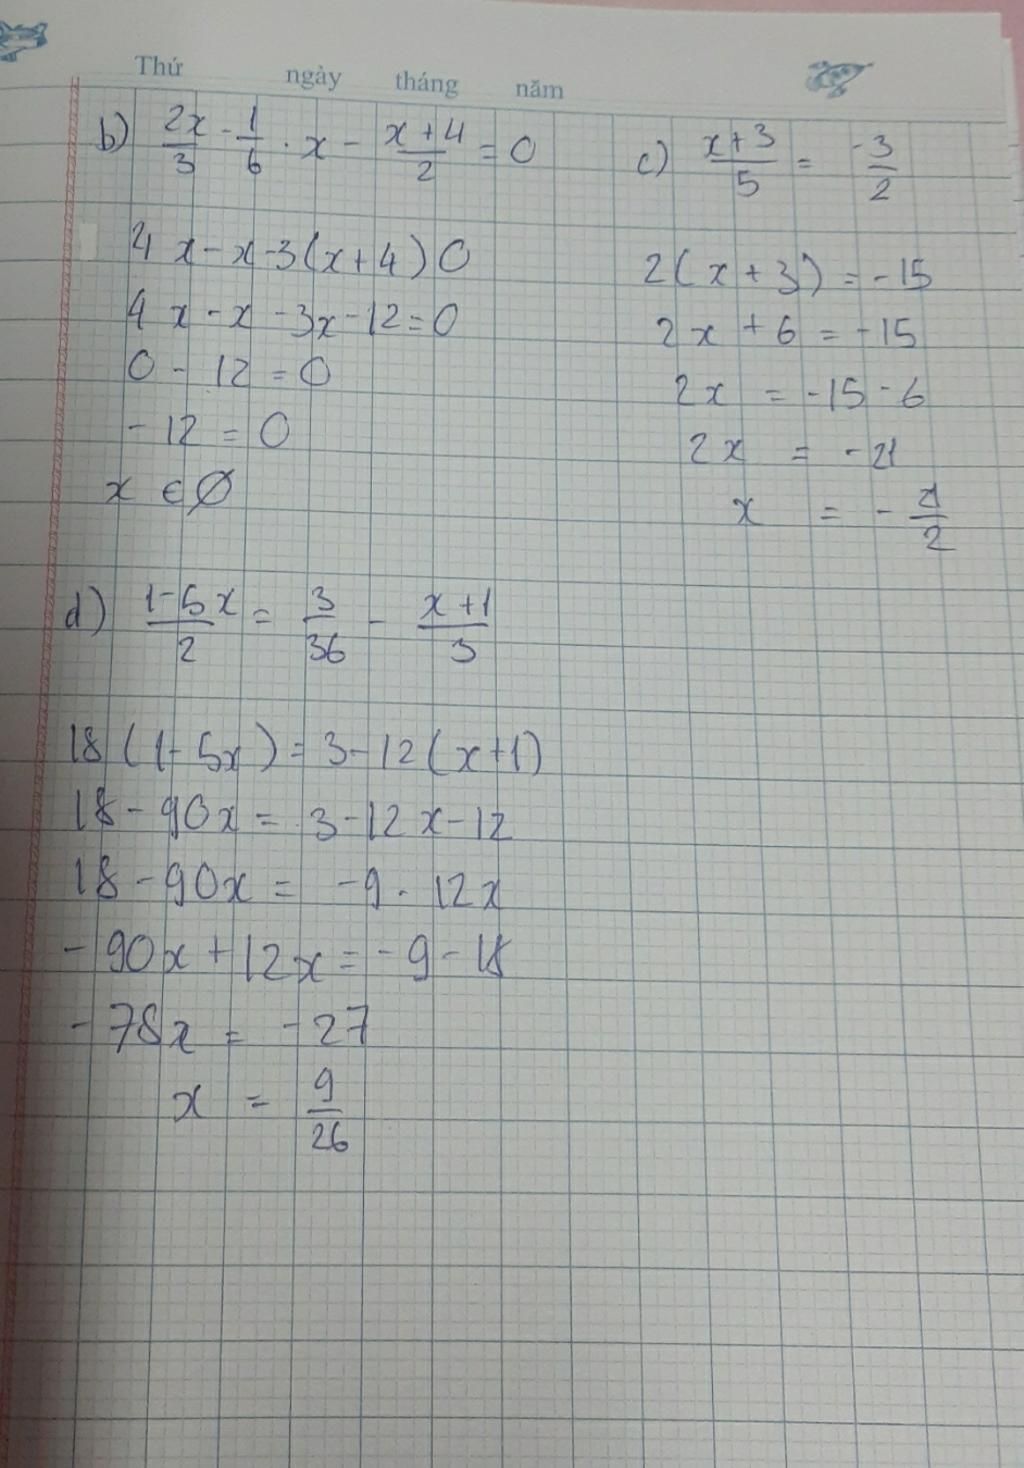 Thứ ngày tháng năm
b) 2x/3 - 1/6 . x - (x+4)/2 = 0
4x - x - 3(x+4) 0
4x - x - 3x - 12 = 0
0 - 12 = 0
- 12 = 0
x ∈ Ø
c) (x+3)/5 = -3/2
2(x+3) = -15
2x + 6 = -15
2x = -15 - 6
2x = -21
x = - 21/2
d) (1-5x)/2 = 3/36 - (x+1)/3
18(1-5x) = 3-12(x+1)
18 - 90x = 3-12x-12
18 - 90x = -9 - 12x
- 90x + 12x = -9 - 18
- 78x = -27
x = 9/26